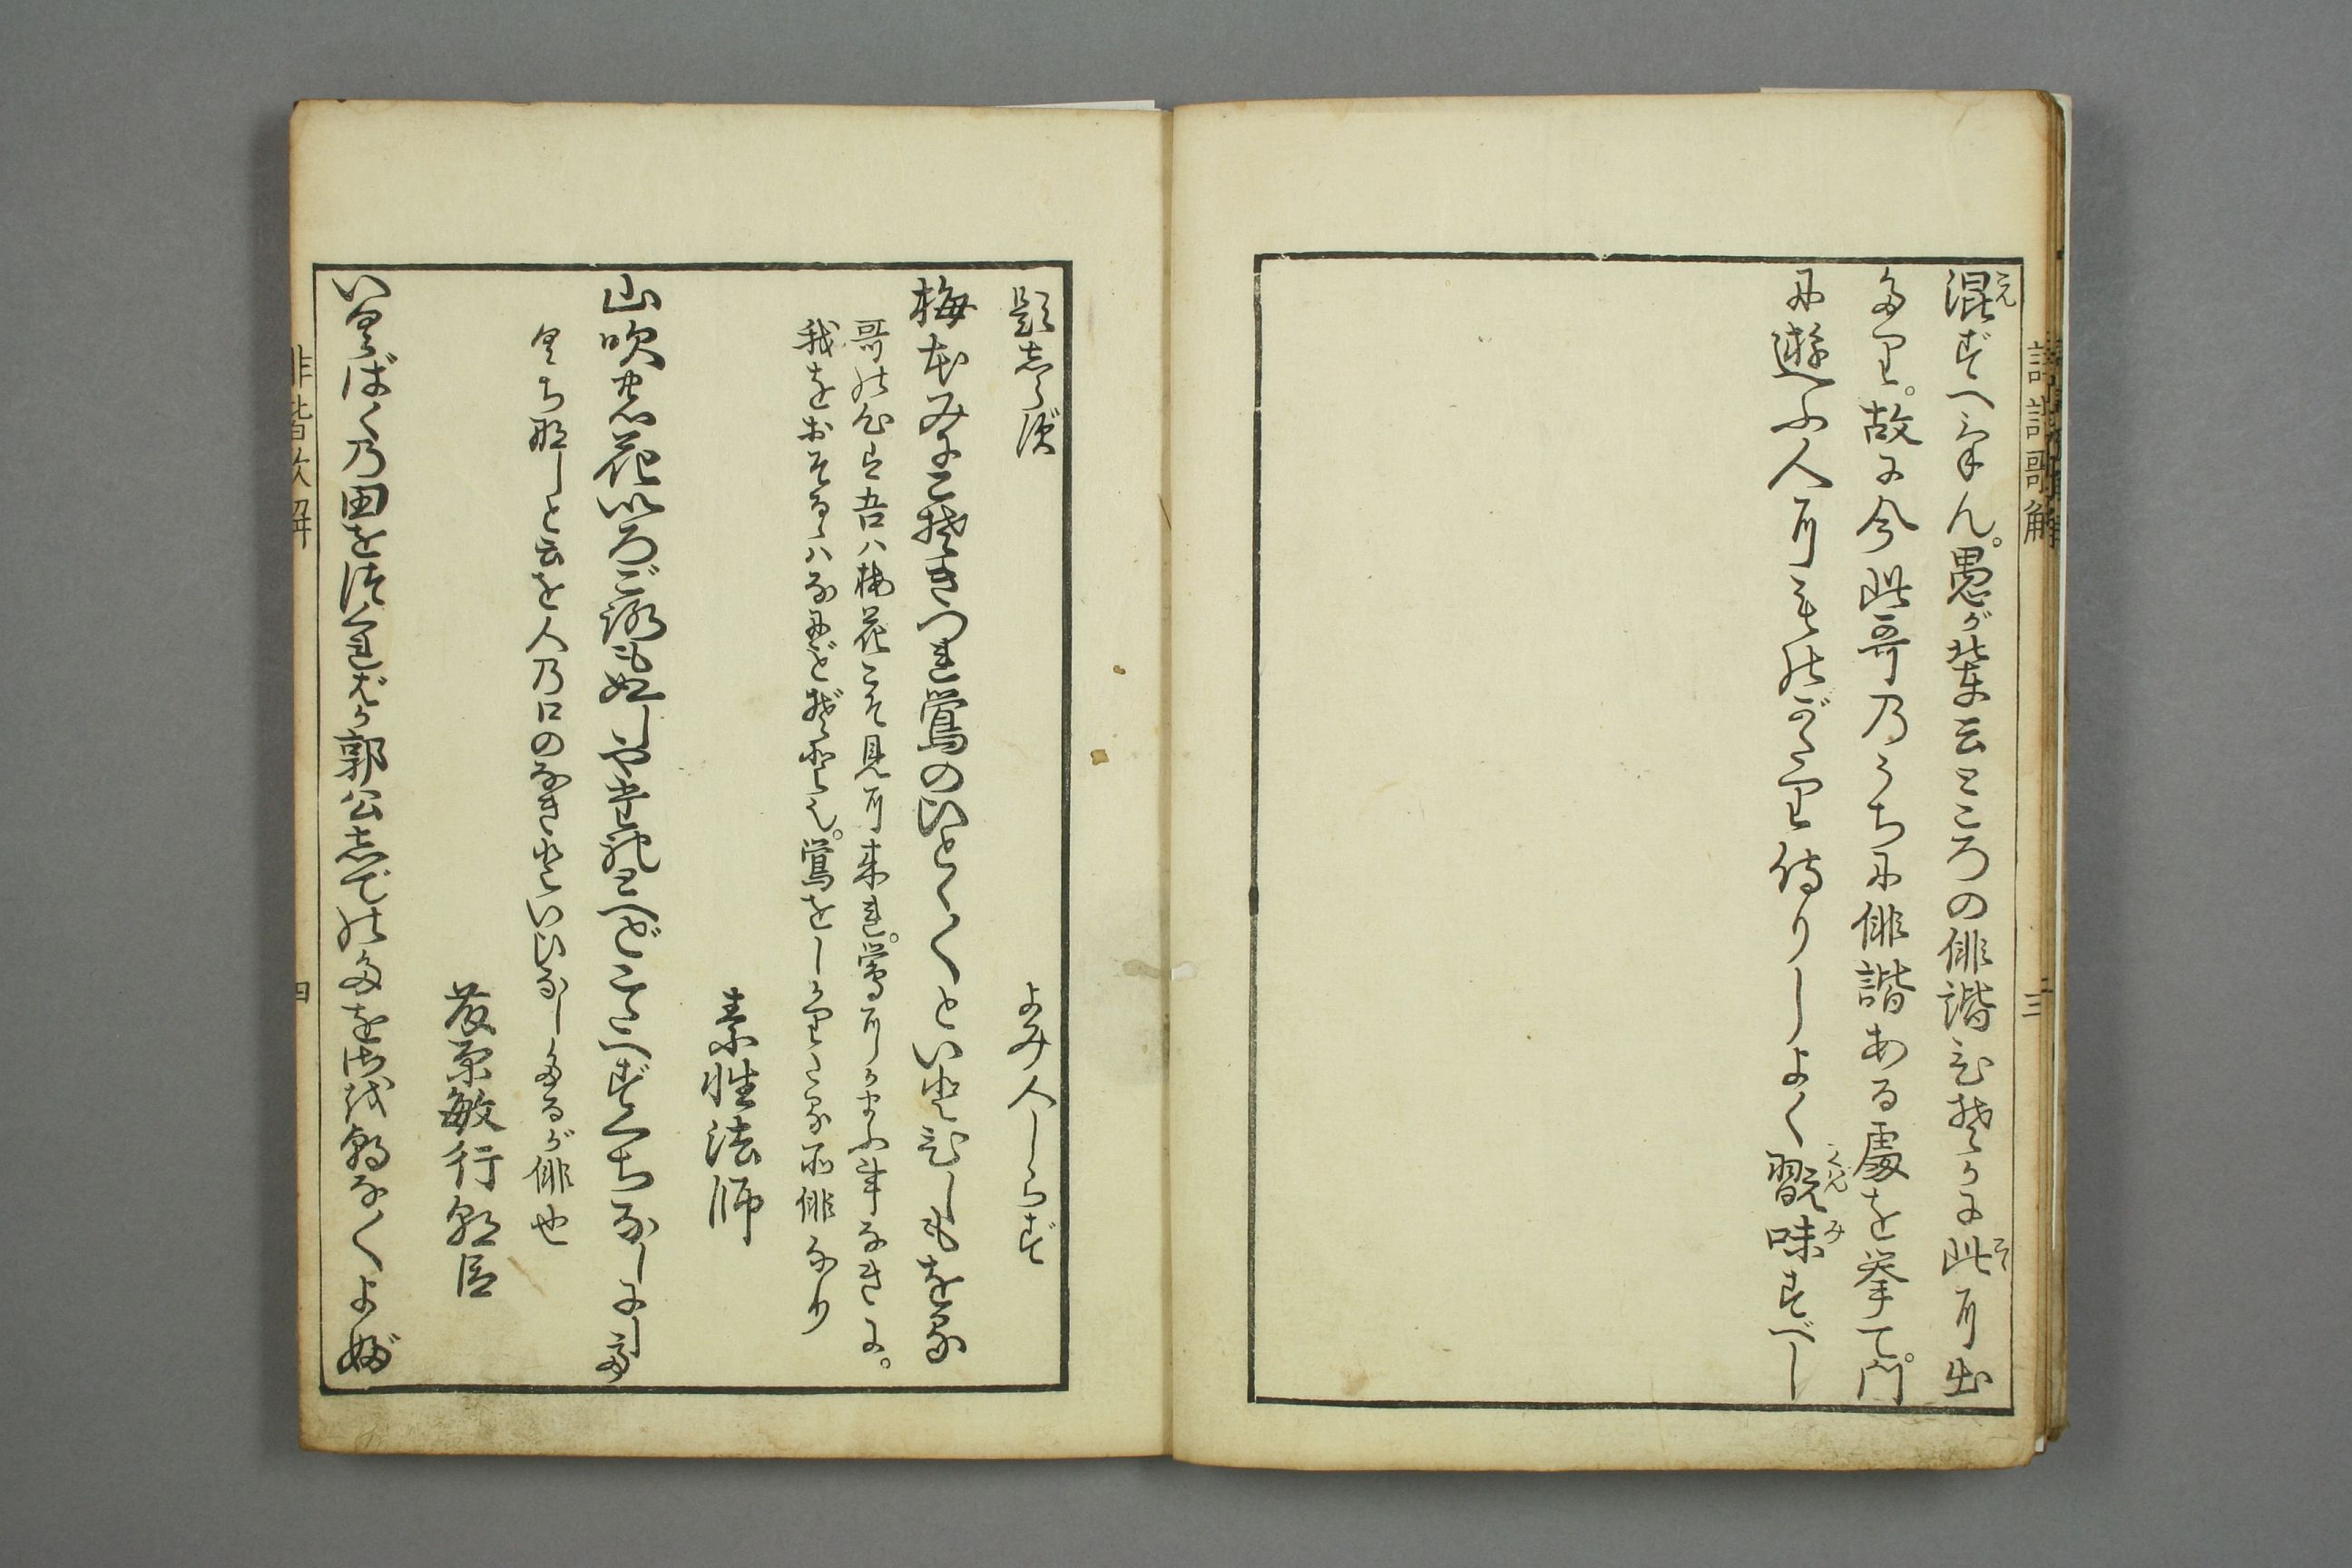 誹諧哥解
三
混ずへけん。愚が葉云ところの俳諧ひそかに此に出
こん
こゝ
たり。故に今此哥のうちに俳諧ある處を挙て。門
に遊ふ人にものがたり侍りしよく翫味すべし
ぐわんみ
題しらず　よみ人しらず
梅花みにこそきつれ鶯のひとく〱といとひしもをる
哥の心は吾ハ梅花こそ見に来れ。鶯にかまふ事なきに。
我をおそるゝハなにぞとぞ。鶯をしかりたる所俳なり
素性法師
山吹の花いろごろもぬしやたれとへどこたへずくちなしにして
くちなしと云を人の口のなきといひなしたるが俳也
藤原敏行朝臣
いくばくの田を作ればか郭公しでのたをさを朝な〱よぶ
四